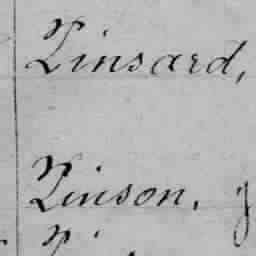 Pinsard,
Pinson. J